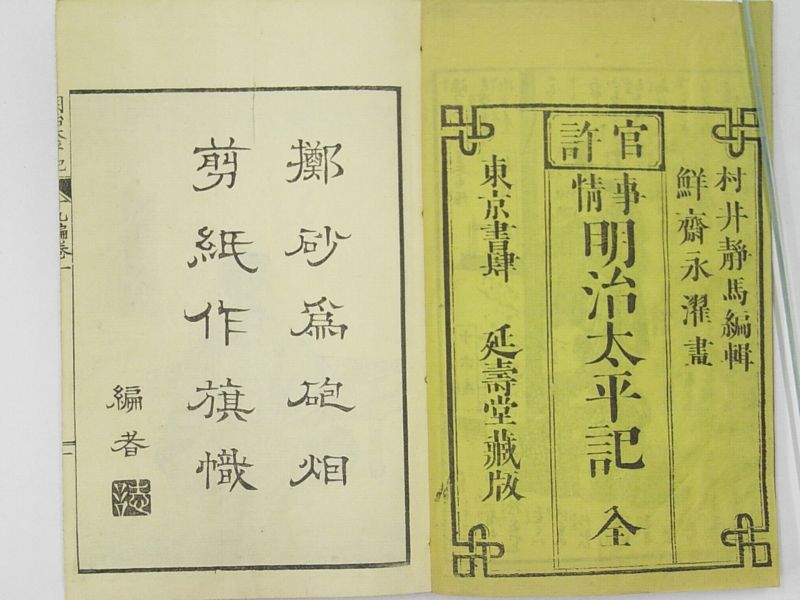 村井靜馬編輯
鮮齋永濯畫
官許
事情
明治太平記 全
東京書肆 延壽堂藏版
擲砂爲砲烟
剪紙作旗幟
編者
明治太平記 九編卷一